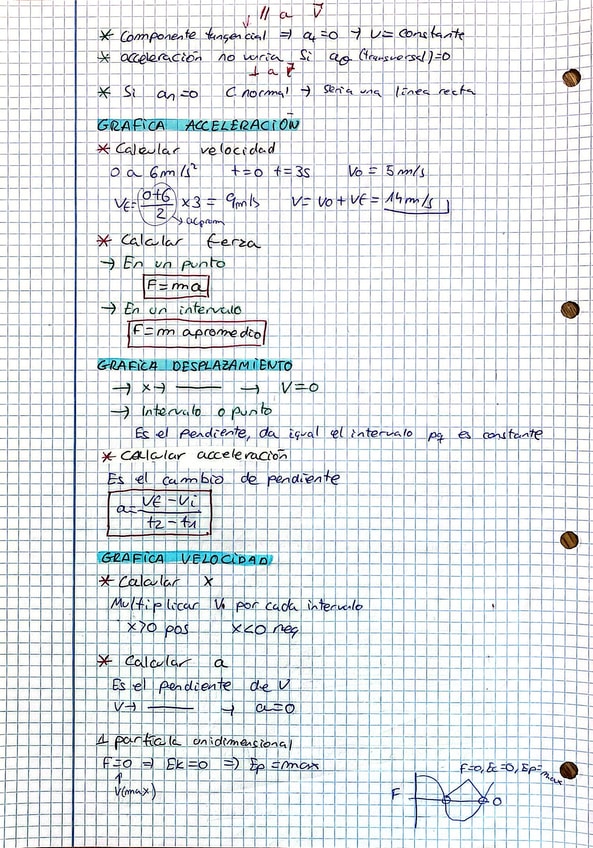 // a v
* Componente tangencial ⇒ at=0 → v= constante
* acceleración no varia Si aθ (transversal)=0
⊥ a v
* Si an=0 C. normal → seria una linea recta
GRAFICA ACCELERACIÓN
* Calcular velocidad
0 a 6m/s² t=0 t=3s Vo = 5m/s
Vf= 0+6/2 x3 = 9m/s V= Vo + Vf = 14m/s
→ acprom
* Calcular ferza
→ En un punto
F=ma
→ En un intervalo
F=m apromedio
GRAFICA DESPLAZAMIENTO
→ x→ —— → V=0
→ Intervalo o punto
Es el pendiente, da igual el intervalo pq es constante
* Calcular acceleración
Es el cambio de pendiente
a= Vf-Vi / t2-t1
GRAFICA VELOCIDAD
* Calcular x
Multiplicar V. por cada intervalo
x>0 pos x<0 neg
* Calcular a
Es el pendiente de V
V→ —— → a=0
1 particula unidimensional
F=0 ⇒ Ek=0 ⇒ Ep=max
↑
V(max)
F=0, Ec=0, Ep=max
F 0